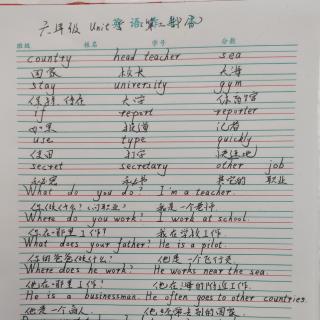 六年级 Unit 英语第二部
班级 姓名 学号 分数
country head teacher sea
国家 校长 大海
stay university gym
保持,停在 大学 体育馆
if report reporter
如果 报道 记者
use type quickly
使用 打字 快速地
secret secretary other job
秘密 秘书 其它的 职业
What do you do? I'm a teacher.
你做什么? 我是一个老师
Where do you work? I work at school.
你在哪里工作? 我在学校工作
What does your father? He is a pilot.
你的爸爸做什么? 他是一个飞行员
Where does he work? He works near the sea.
他在哪里工作? 他在海的附近工作
He is a businessman. He often goes to other countries.
他是一个商人. 他经常去别的国家